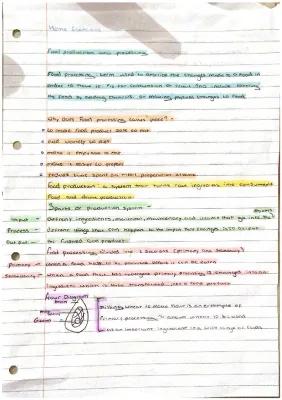 Home Economics
Food production and processing
Food processing term used to describe the changes made to a food in
order to make it fit for consumption or
the food by adding chemicals, or physical changes to food
Why does food processing takes place? -
to make food product safe to eat
add variety to diet
make it enjoyable to eat
make it easier to prepare
reduce time spent on meal preparation
Food production: a system that turns raw ingredients into consumable
food and drink products
3 parts of production system -
Input - Different ingredients, materials, machinery and
Process - different things that happens to the input that changes
Out put - the finished food product
Food processing divided into 2 sections (primary and secondary)
Primary - when a food needs to be processed before it can be eaten
Secondary - when a food that has undergone primary processing is changed into an
ingredient which is to be transformed into a food product
Flour Diagram
Bran
Germ
Milling wheat to make flour is an example of
Primary processing.
an important ingredient in a wide range of foods